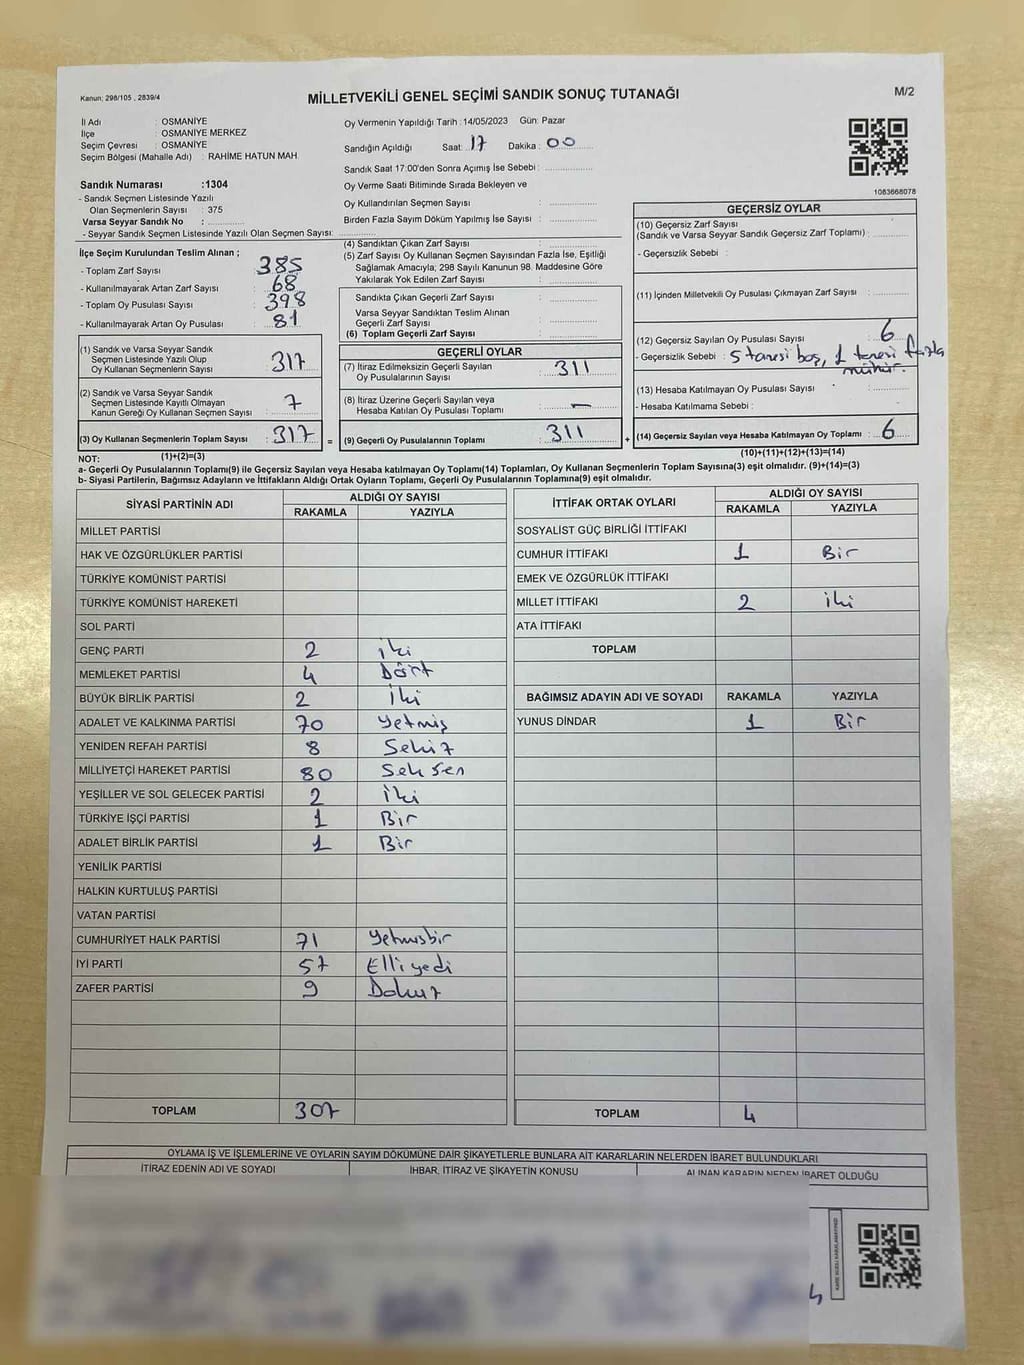 Kanun; 298/105 , 2839/4
MİLLETVEKİLİ GENEL SEÇİMİ SANDIK SONUÇ TUTANAĞI
M/2
İl Adı : OSMANİYE
İlçe : OSMANİYE MERKEZ
Seçim Çevresi : OSMANİYE
Seçim Bölgesi (Mahalle Adı) : RAHİME HATUN MAH
Sandık Numarası :1304
- Sandık Seçmen Listesinde Yazılı
Olan Seçmenlerin Sayısı : 375
Varsa Seyyar Sandık No :
- Seyyar Sandık Seçmen Listesinde Yazılı Olan Seçmen Sayısı:
Oy Vermenin Yapıldığı Tarih :14/05/2023 Gün: Pazar
Sandığın Açıldığı Saat: 17 Dakika : 00
Sandık Saat 17:00'den Sonra Açımış İse Sebebi :
Oy Verme Saati Bitiminde Sırada Bekleyen ve
Oy Kullandırılan Seçmen Sayısı :
Birden Fazla Sayım Döküm Yapılmış İse Sayısı :
1083668078
İlçe Seçim Kurulundan Teslim Alınan ;
- Toplam Zarf Sayısı : 385
- Kullanılmayarak Artan Zarf Sayısı : 68
- Toplam Oy Pusulası Sayısı : 398
- Kullanılmayarak Artan Oy Pusulası : 81
(1) Sandık ve Varsa Seyyar Sandık
Seçmen Listesinde Yazılı Olup
Oy Kullanan Seçmenlerin Sayısı : 317
(2) Sandık ve Varsa Seyyar Sandık
Seçmen Listesinde Kayıtlı Olmayan
Kanun Gereği Oy Kullanan Seçmen Sayısı : 7
(3) Oy Kullanan Seçmenlerin Toplam Sayısı : 317 =
(4) Sandıktan Çıkan Zarf Sayısı :
(5) Zarf Sayısı Oy Kullanan Seçmen Sayısından Fazla İse, Eşitliği
Sağlamak Amacıyla; 298 Sayılı Kanunun 98. Maddesine Göre
Yakılarak Yok Edilen Zarf Sayısı :
Sandıkta Çıkan Geçerli Zarf Sayısı :
Varsa Seyyar Sandıktan Teslim Alınan
Geçerli Zarf Sayısı :
(6) Toplam Geçerli Zarf Sayısı :
GEÇERLİ OYLAR
(7) İtiraz Edilmeksizin Geçerli Sayılan
Oy Pusulalarının Sayısı : 311
(8) İtiraz Üzerine Geçerli Sayılan veya
Hesaba Katılan Oy Pusulası Toplamı : -
(9) Geçerli Oy Pusulalarının Toplamı : 311 +
GEÇERSİZ OYLAR
(10) Geçersiz Zarf Sayısı
(Sandık ve Varsa Seyyar Sandık Geçersiz Zarf Toplamı) :
- Geçersizlik Sebebi :
(11) İçinden Milletvekili Oy Pusulası Çıkmayan Zarf Sayısı :
(12) Geçersiz Sayılan Oy Pusulası Sayısı : 6
- Geçersizlik Sebebi : 5 tanesi boş, 1 tanesi fazla
mühür.
(13) Hesaba Katılmayan Oy Pusulası Sayısı :
- Hesaba Katılmama Sebebi :
(14) Geçersiz Sayılan veya Hesaba Katılmayan Oy Toplamı : 6
NOT: (1)+(2)=(3) (10)+(11)+(12)+(13)=(14)
a- Geçerli Oy Pusulalarının Toplamı(9) ile Geçersiz Sayılan veya Hesaba katılmayan Oy Toplamı(14) Toplamları, Oy Kullanan Seçmenlerin Toplam Sayısına(3) eşit olmalıdır. (9)+(14)=(3)
b- Siyasi Partilerin, Bağımsız Adayların ve İttifakların Aldığı Ortak Oyların Toplamı, Geçerli Oy Pusulalarının Toplamına(9) eşit olmalıdır.
SİYASİ PARTİNİN ADI ALDIĞI OY SAYISI
RAKAMLA YAZIYLA
MİLLET PARTİSİ
HAK VE ÖZGÜRLÜKLER PARTİSİ
TÜRKİYE KOMÜNİST PARTİSİ
TÜRKİYE KOMÜNİST HAREKETİ
SOL PARTİ
GENÇ PARTİ 2 iki
MEMLEKET PARTİSİ 4 Dört
BÜYÜK BİRLİK PARTİSİ 2 İki
ADALET VE KALKINMA PARTİSİ 70 yetmiş
YENİDEN REFAH PARTİSİ 8 Sekiz
MİLLİYETÇİ HAREKET PARTİSİ 80 Seksen
YEŞİLLER VE SOL GELECEK PARTİSİ 2 İki
TÜRKİYE İŞÇİ PARTİSİ 1 Bir
ADALET BİRLİK PARTİSİ 1 Bir
YENİLİK PARTİSİ
HALKIN KURTULUŞ PARTİSİ
VATAN PARTİSİ
CUMHURİYET HALK PARTİSİ 71 yetmişbir
İYİ PARTİ 57 Elliyedi
ZAFER PARTİSİ 9 Dokuz
TOPLAM 307
İTTİFAK ORTAK OYLARI ALDIĞI OY SAYISI
RAKAMLA YAZIYLA
SOSYALİST GÜÇ BİRLİĞİ İTTİFAKI
CUMHUR İTTİFAKI 1 Bir
EMEK VE ÖZGÜRLÜK İTTİFAKI
MİLLET İTTİFAKI 2 iki
ATA İTTİFAKI
TOPLAM
BAĞIMSIZ ADAYIN ADI VE SOYADI RAKAMLA YAZIYLA
YUNUS DİNDAR 1 Bir
TOPLAM 4
OYLAMA İŞ VE İŞLEMLERİNE VE OYLARIN SAYIM DÖKÜMÜNE DAİR ŞİKAYETLERLE BUNLARA AİT KARARLARIN NELERDEN İBARET BULUNDUKLARI
İTİRAZ EDENİN ADI VE SOYADI İHBAR, İTİRAZ VE ŞİKAYETİN KONUSU ALINAN KARARIN NEDEN İBARET OLDUĞU